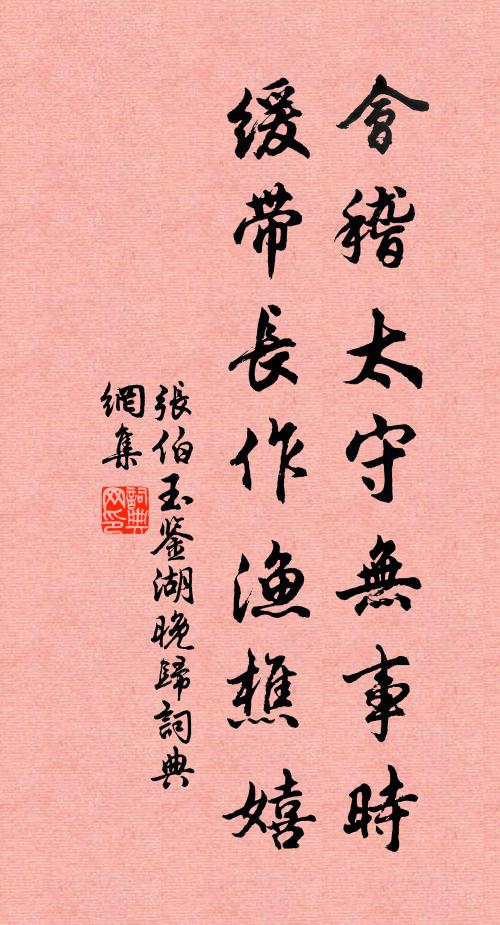 會稽太守無事時
緩帶長作漁樵嬉
張伯玉鉴湖晚歸詞典
網集
詞典网印